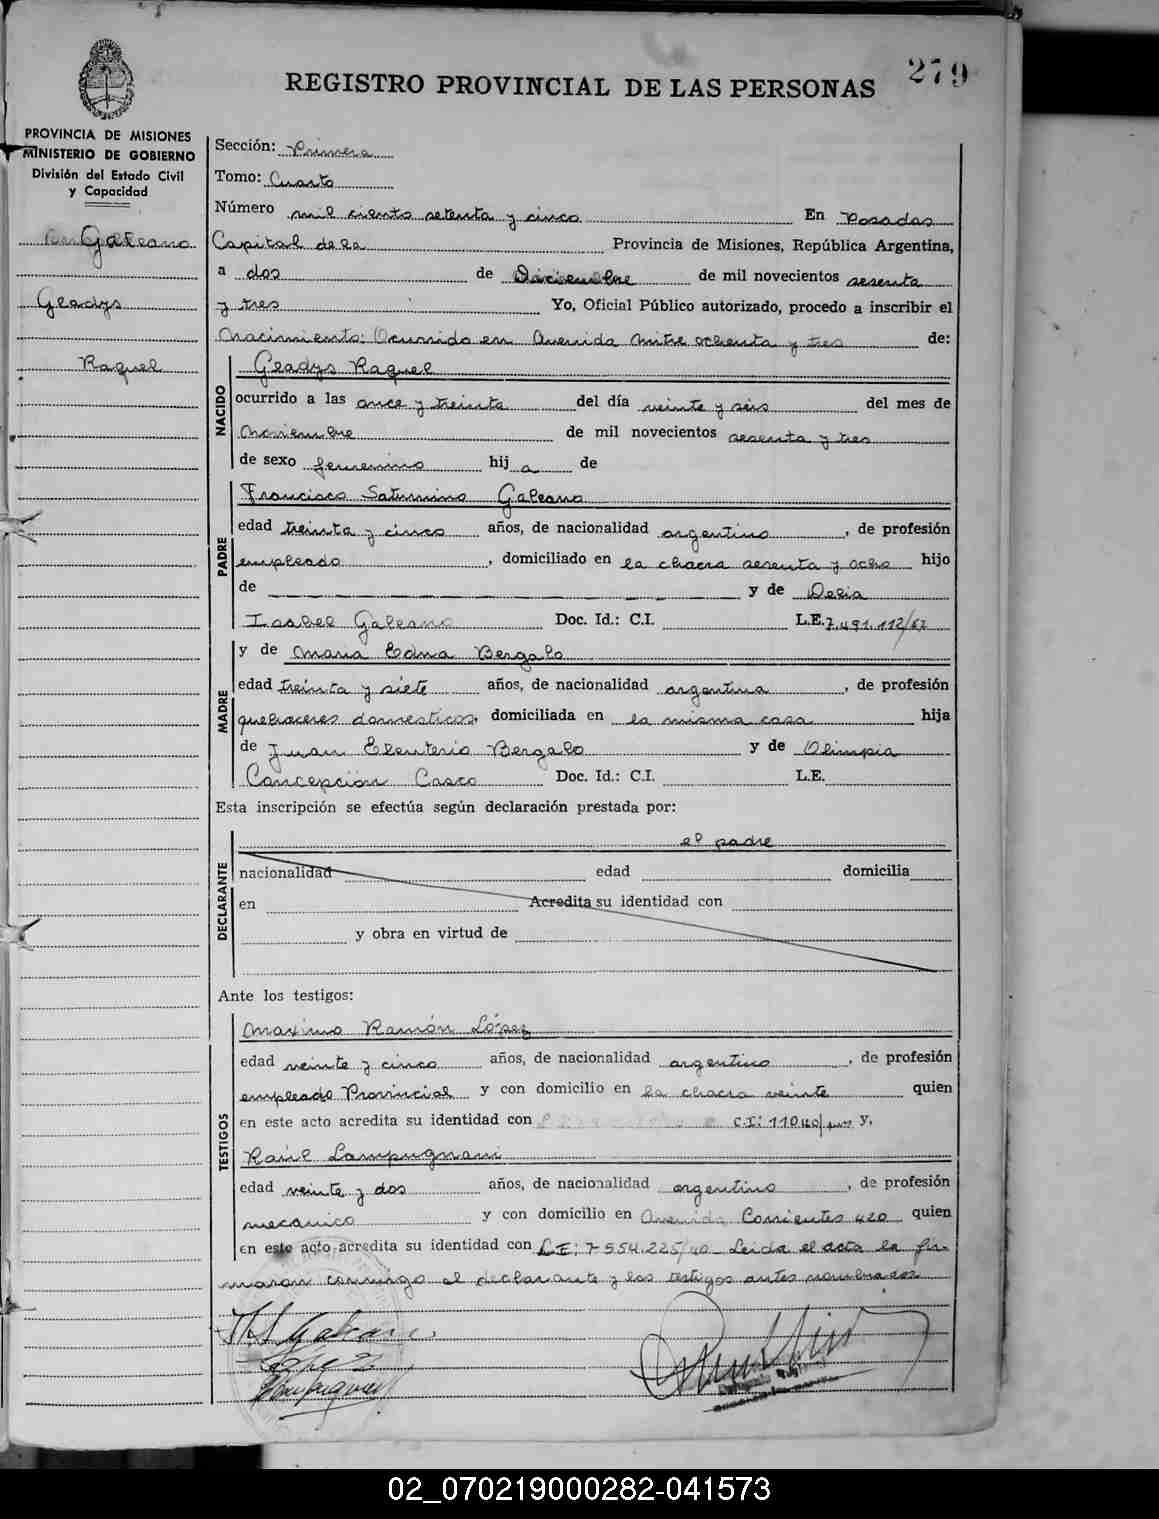 279
REGISTRO PROVINCIAL DE LAS PERSONAS
PROVINCIA DE MISIONES
MINISTERIO DE GOBIERNO
División del Estado Civil
y Capacidad
Galeano
Gladys
Raquel
Sección: Primera
Tomo: Cuarto
Número mil ciento setenta y cinco En Posadas
Capital de la Provincia de Misiones, República Argentina,
a dos de Diciembre de mil novecientos sesenta
y tres Yo, Oficial Público autorizado, procedo a inscribir el
Nacimiento: Ocurrido en Avenida Mitre ochenta y tres de:
NACIDO
Gladys Raquel
ocurrido a las once y treinta del día veinte y seis del mes de
Noviembre de mil novecientos sesenta y tres
de sexo femenino hij a de
PADRE
Francisco Saturnino Galeano
edad treinta y cinco años, de nacionalidad argentino, de profesión
empleado, domiciliado en la chacra sesenta y ocho hijo
de y de Delia
Isabel Galeano Doc. Id.: C.I. L.E. 7.491.112/67
MADRE
y de Maria Edna Bergalo
edad treinta y siete años, de nacionalidad argentina, de profesión
quehaceres domesticos, domiciliada en la misma casa hija
de Juan Eleuterio Bergalo y de Olimpia
Concepción Casco Doc. Id.: C.I. L.E.
Esta inscripción se efectúa según declaración prestada por:
DECLARANTE
el padre
nacionalidad edad domicilia
en Acredita su identidad con
y obra en virtud de
Ante los testigos:
TESTIGOS
Maximo Ramón López
edad veinte y cinco años, de nacionalidad argentino, de profesión
empleado Provincial y con domicilio en la chacra veinte quien
en este acto acredita su identidad con C.I: 11040 y,
Raúl Lampugnani
edad veinte y dos años, de nacionalidad argentino, de profesión
mecanico y con domicilio en Avenida Corrientes 420 quien
en este acto acredita su identidad con L.E: 7.554.225/40 Leida el acta la fir-
maron conmigo el declarante y los testigos antes nombrados
F S Galeano
López
Lampugnani
02_070219000282-041573